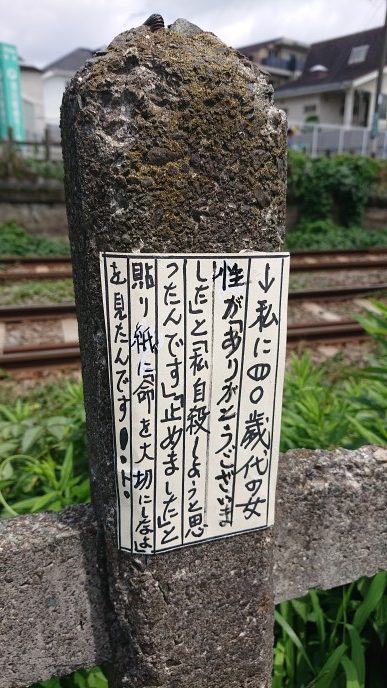 ↓私に四〇歳代の女
性が「ありがとうございま
した」と「私自殺しようと思
ったんです」「止めました」と
貼り紙に命を大切にしなよ
を見たんです!・ト・